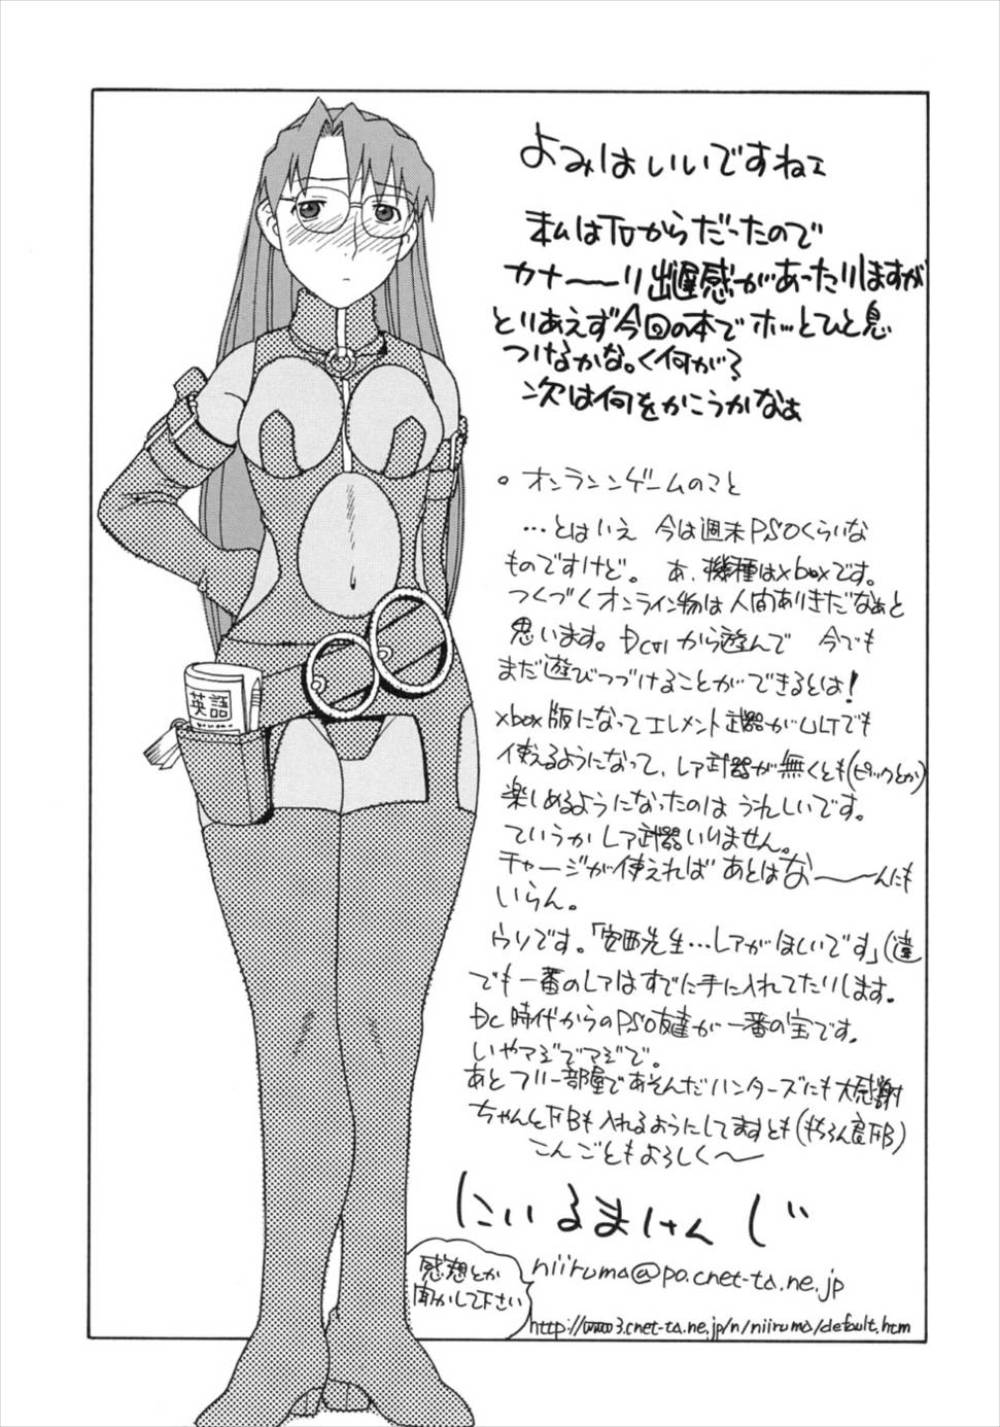 よみはいいですねェ
私はTVからだったので
カナ〜〜リ出遅感があったりしますが
とりあえず今回の本でホッとひと息
つけるかな。く何が?
次は何をかこうかなぁ
。オンランンゲームのこと
…とはいえ 今は週末PSOくらいな
ものですけど。 あ、機種はxboxです。
つくづくオンライン物は人間ありきだなぁと
思います。DCの1から遊んで 今でも
まだ遊びつづけることができるとは!
xbox版になってエレメント武器がULTでも
使えるようになって、レア武器が無くとも(ピックとか)
楽しめるようになったのは うれしいです。
ていうかレア武器いりません。
チャージが使えれば あとはな〜〜んにも
いらん。
ウソです。「安西先生…レアがほしいです」(違
でも一番のレアはすでに手に入れてたりします。
DC時代からのPSO友達が一番の宝です。
いやマジでマジで。
あとフリー部屋であそんだハンターズにも大感謝
ちゃんとFBも入れるようにしてますとも(もちろん良FB)
こんごともよろしく〜
にいるまけんじ
感想とか
聞かして下さい
niiruma@po.cnet-ta.ne.jp
http://www3.cnet-ta.ne.jp/n/niiruma/default.htm
英語